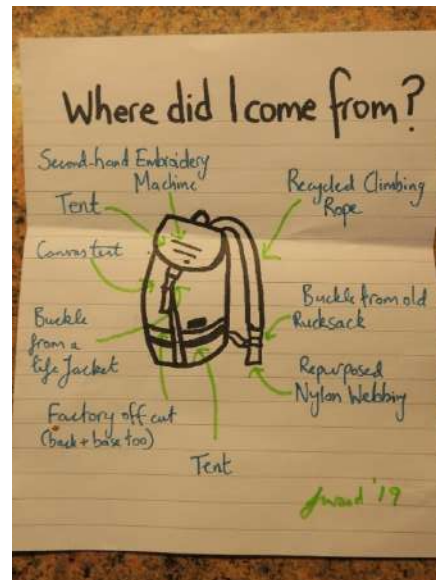 Where did I come from?
Second-hand Embroidery
Machine
Tent
Canvas tent
Buckle
from a
life Jacket
Factory off cut
(back + base too)
Tent
Recycled Climbing
Rope
Buckle from old
Rucksack
Repurposed
Nylon Webbing
'19